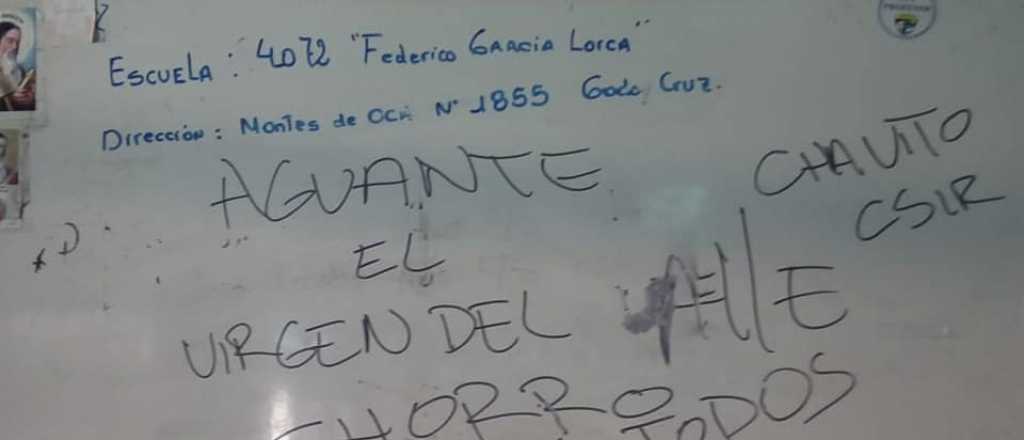 Escuela: 4072 "Federico García Lorca"
Dirección: Montes de Oca N° 1855 Godo Cruz.
AGUANTE
EL
VIRGEN DEL VALLE
CHAVITO
CSIR
CHORRO
TODOS